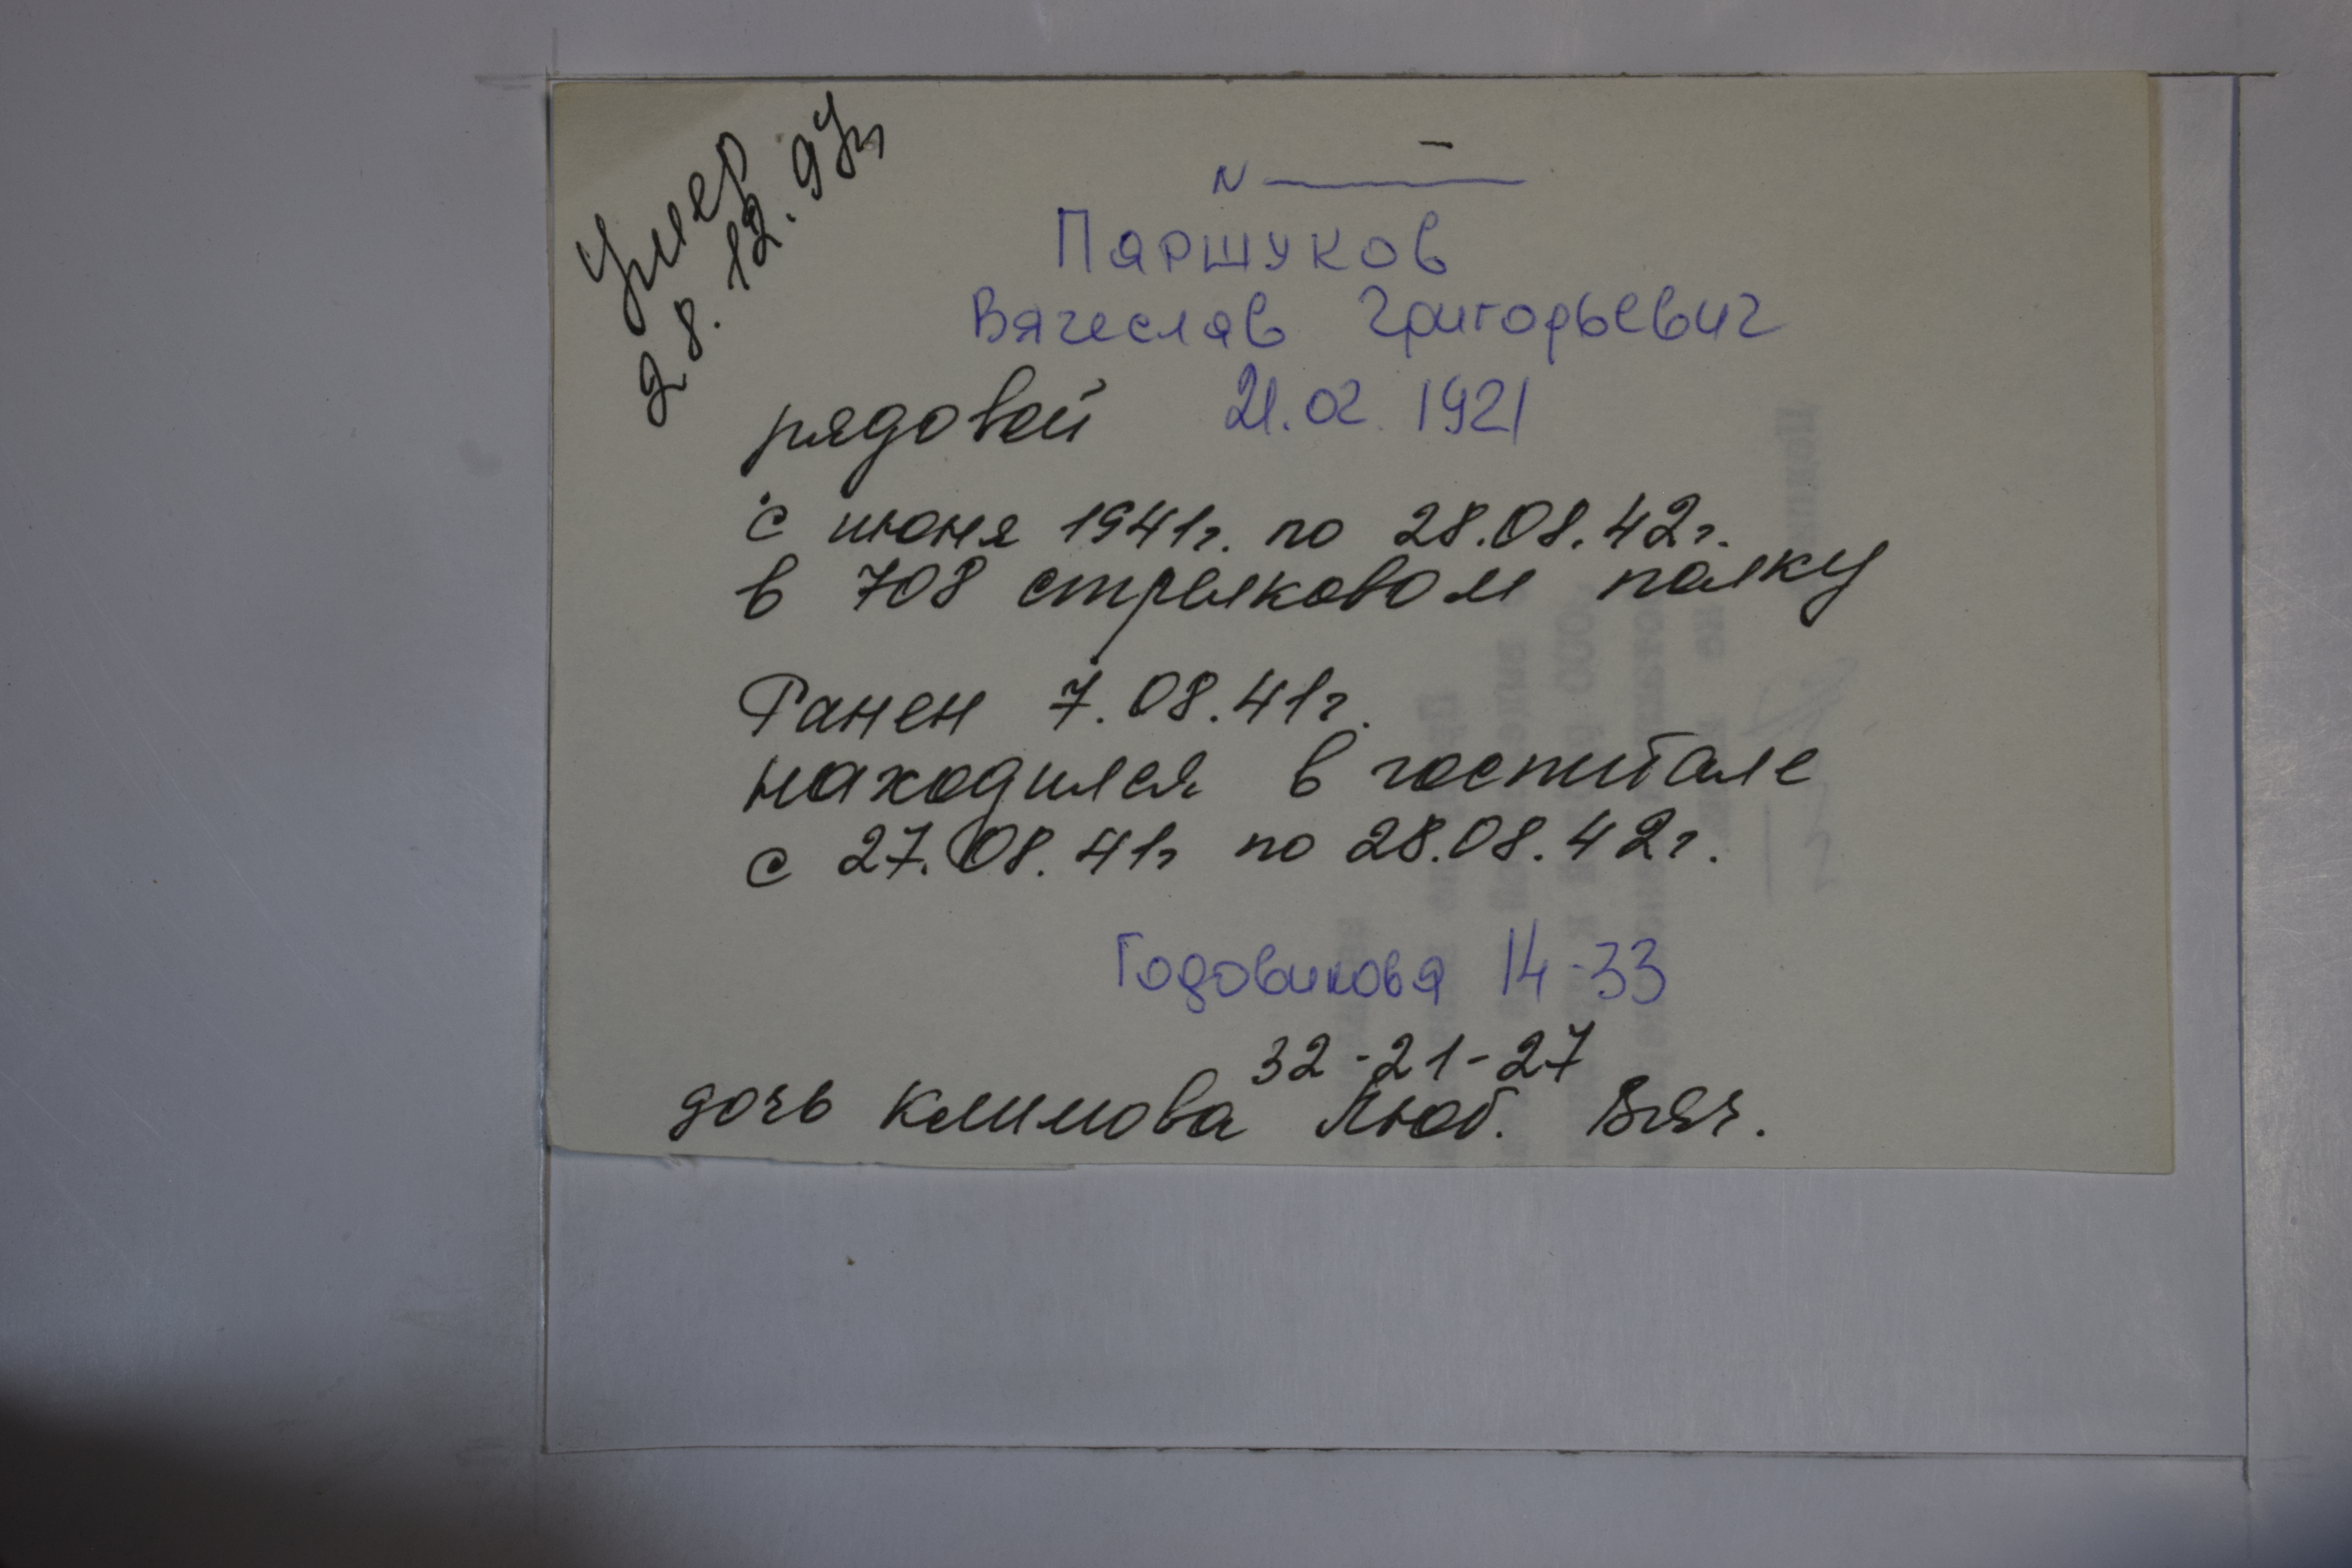 Умер
28.12.97г
N
Паршуков
Вячеслав Григорьевич
рядовой 21.02.1921
с июня 1941г. по 28.08.42г.
в 708 стрелковом полку
Ранен 7.08.41г.
находился в госпитале
с 27.08.41г по 28.08.42г.
Годовикова 14-33
32-21-27
дочь Климова Люб. Вяч.